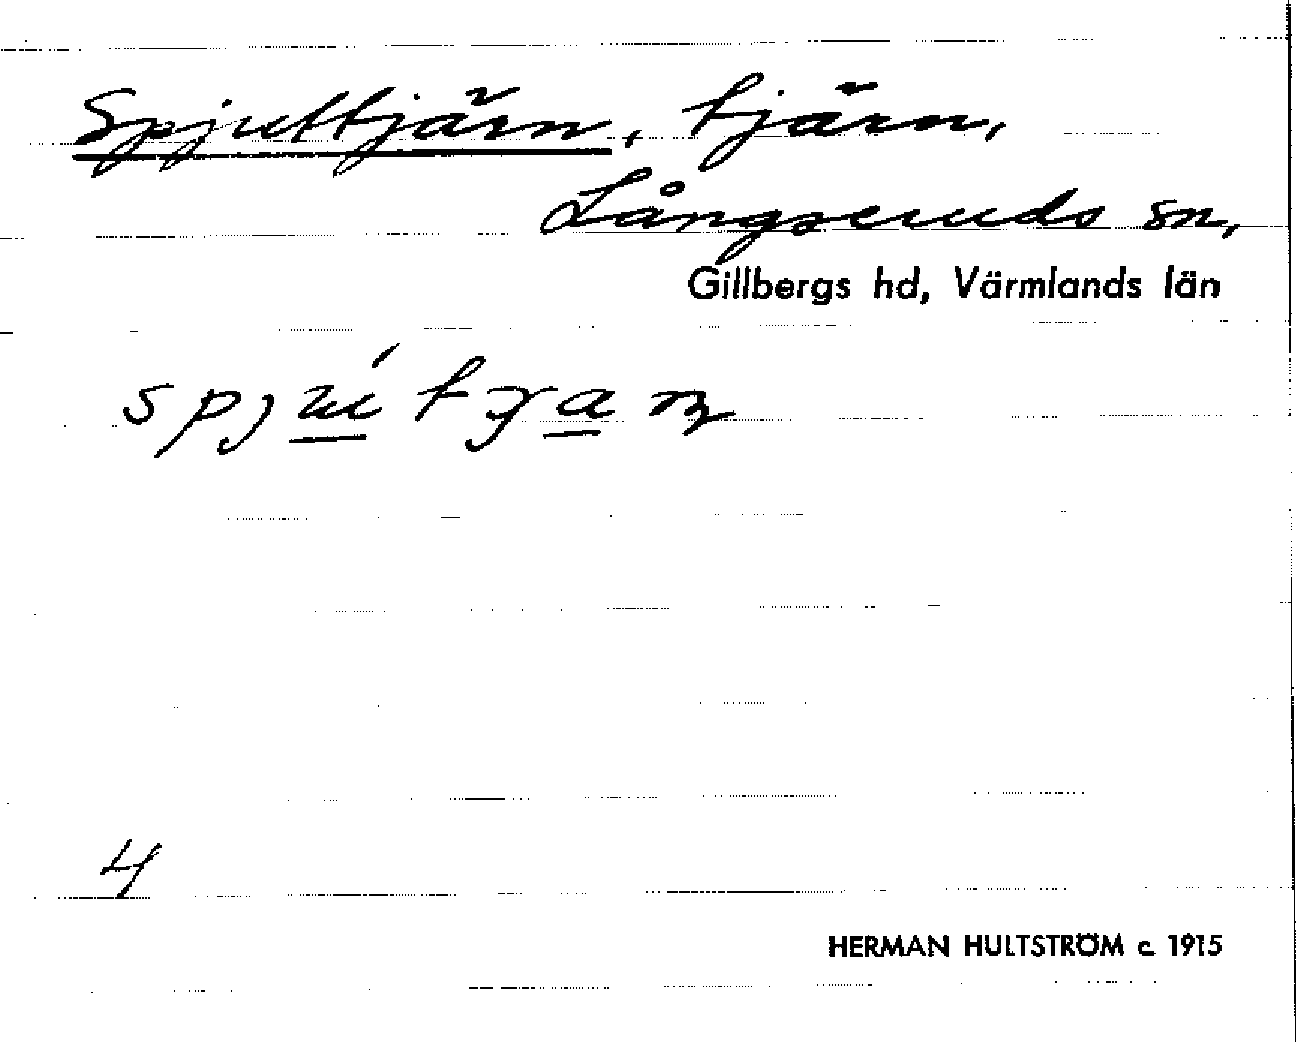 Spjuttjärn, tjärn,
Långseruds sn,
Gillbergs hd, Värmlands län
4
HERMAN HULTSTRÖM c. 1915